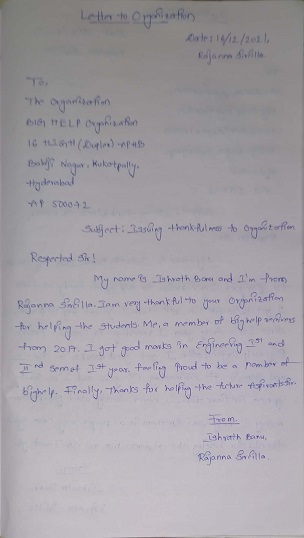 Letter to Organization
Date: 16/12/2021,
Rajanna Sircilla.
To,
The Organization
BIG HELP Organization
16 HIGH (Duplex) - APHB
Balaji Nagar, Kukatpally,
Hyderabad
AP 500072
Subject: Issuing thankfulness to Organization
Respected Sir!
My name is Ishrath Banu and I'm from
Rajanna Sircilla. Iam very thankful to your Organization
for helping the Students. Me, a member of bighelp
from 2017. I got good marks in Engineering Ist and
IInd sem of Ist year. Feeling Proud to be a member of
bighelp. Finally, Thanks for helping the future
From
Ishrath Banu,
Rajanna Sircilla